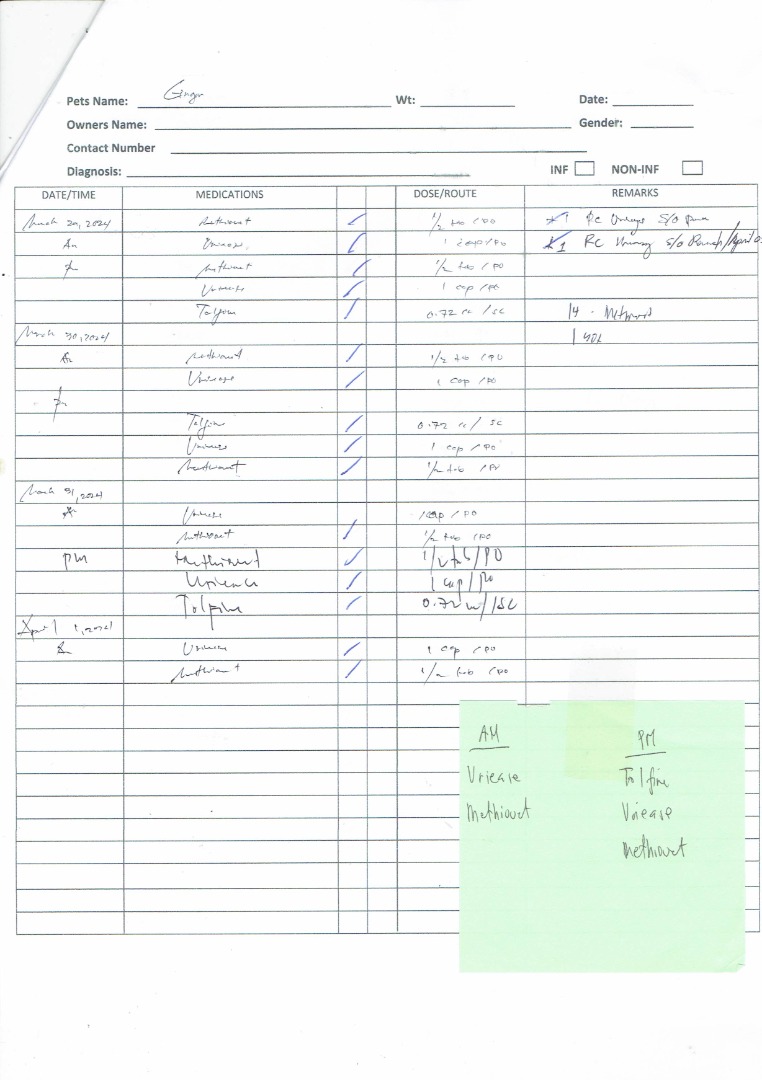 Pets Name: Ginger Wt: Date:
Owners Name: Gender:
Contact Number
Diagnosis: INF NON-INF
DATE/TIME MEDICATIONS DOSE/ROUTE REMARKS
March 29, 2024 Methiovet 1/2 tab / PO RC Urinary S/O
Am 1 cap / PO 1 RC Urinary S/O
pm Methiovet 1/2 tab / PO
1 cap / PO
0.72 cc / SC 14 - Methiovet
March 30, 2024 1
Am Methiovet 1/2 tab / PO
1 cap / PO
pm
0.72 cc / SC
1 cap / PO
Methiovet 1/2 tab / PO
March 31, 2024
1 cap / PO
Methiovet 1/2 tab / PO
pm Methiovet 1/2 tab / PO
Uriease 1 cap / PO
Tolfine 0.72 / SC
April 1, 2024
1 cap / PO
Methiovet 1/2 tab / PO
AM PM
Uriease Tolfine
Methiovet Uriease
Methiovet